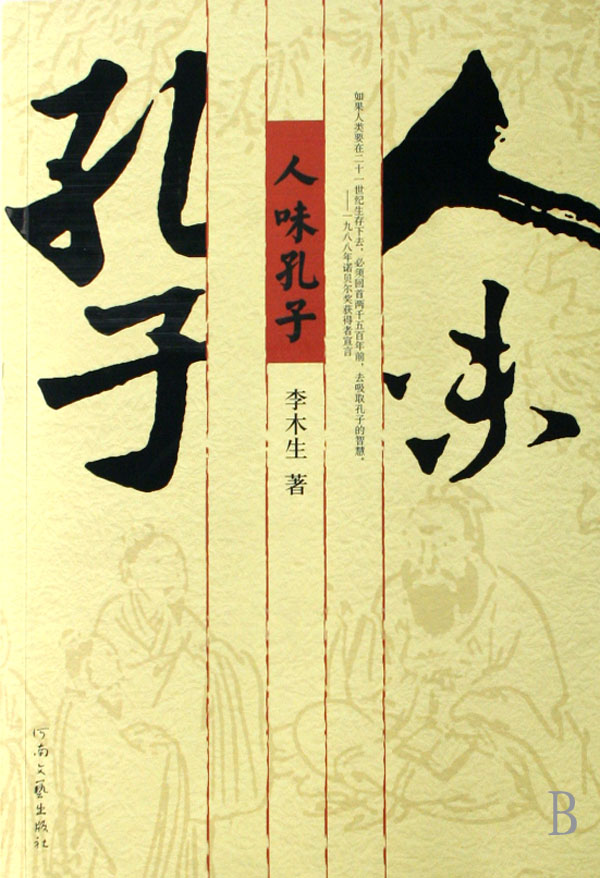 人味
孔子
如果人类要在二十一世纪生存下去，必须回首两千五百年前，去吸取孔子的智慧。
——一九八八年诺贝尔奖获得者宣言
人味孔子
李木生 著
河南文艺出版社
B